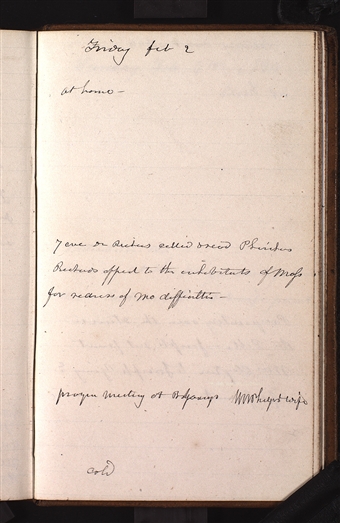 Friday Feb 2
at home —
7 eve Dr Richards called & read Phinehas
Richards appeal to the inhabitants of Mass
for redress of Mo difficulties —
prayer meeting at W W Phelps & wife
cold